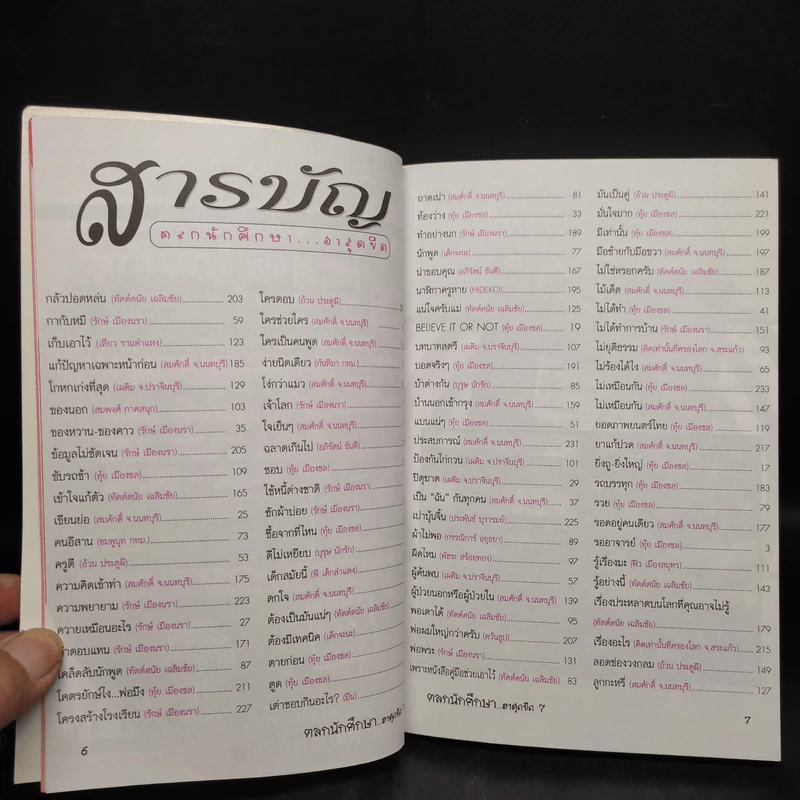 สารบัญ
ตลกนักศึกษา...ฮาสุดขีด
กลัวปอดหล่น (ทัตต์ดนัย เฉลิมชัย) 203
กากับหมี (รักษ์ เมืองนรา) 59
เก็บเอาไว้ (เหียว รามคำแหง) 123
แก้ปัญหาเฉพาะหน้าก่อน (สมศักดิ์ จ.นนทบุรี) 185
โกหกเก่งที่สุด (เผดิม จ.ปราจีนบุรี) 129
ของนอก (สมพงศ์ กาศสนุก) 103
ของหวาน-ของคาว (รักษ์ เมืองนรา) 35
ข้อมูลไม่ชัดเจน (รักษ์ เมืองนรา) 205
ขับรถช้า (ทุ้ย เมืองชล) 109
เข้าใจแก้ตัว (ทัตต์ดนัย เฉลิมชัย) 165
เขียนย่อ (สมศักดิ์ จ.นนทบุรี) 25
คนอีสาน (ชมพูนุท กทม.) 73
ครูตี (อ้วน ประตูผี) 53
ความคิดเข้าท่า (สมศักดิ์ จ.นนทบุรี) 175
ความพยายาม (รักษ์ เมืองนรา) 223
ควายเหมือนอะไร (รักษ์ เมืองนรา) 27
คำตอบแทน (รักษ์ เมืองนรา) 171
เคล็ดลับนักพูด (ทัตต์ดนัย เฉลิมชัย) 87
โคตรยักษ์ไง...พ่อมึง (ทุ้ย เมืองชล) 211
โครงสร้างโรงเรียน (รักษ์ เมืองนรา) 227
ใครตอบ (อ้วน ประตูผี)
ใครช่วยใคร (สมศักดิ์ จ.นนทบุรี)
ใครเป็นคนพูด (สมศักดิ์ จ.นนทบุรี)
ง่ายนิดเดียว (กันทิมา กทม.)
โง่กว่าแมว (สมศักดิ์ จ.นนทบุรี)
เจ้าโลก (รักษ์ เมืองนรา)
ใจเย็นๆ (สมศักดิ์ จ.นนทบุรี)
ฉลาดเกินไป (อภิรัตน์ ขันตี)
ชอบ (ทุ้ย เมืองชล)
ใช้หนี้ต่างชาติ (รักษ์ เมืองนรา)
ซักผ้าบ่อย (รักษ์ เมืองนรา)
ซื้อจากที่ไหน (ทุ้ย เมืองชล)
ดีไม่เหยียบ (บุรุษ นักรัก)
เด็กสมัยนี้ (พี เด็กลำแดง)
ตกใจ (สมศักดิ์ จ.นนทบุรี)
ต้องเป็นมันแน่ๆ (ทัตต์ดนัย เฉลิมชัย)
ต้องมีเทคนิค (เด็กจะนะ)
ตายก่อน (ทุ้ย เมืองชล)
ตูด (ทุ้ย เมืองชล)
เต่าชอบกินอะไร? (มิน)
ตลกนักศึกษา...ฮาสุดขีด 7
6
ถาดเน่า (สมศักดิ์ จ.นนทบุรี) 81
ท้องว่าง (ทุ้ย เมืองชล) 33
ทำอย่างนก (รักษ์ เมืองนรา) 189
นักพูด (เด็กจะนะ) 77
น่าขอบคุณ (อภิรัตน์ ขันตี) 167
นาฬิกาครูหาย (HIDEKO) 97
แน่ใจครับแม่ (ทัตต์ดนัย เฉลิมชัย) 125
BELIEVE IT OR NOT (ทุ้ย เมืองชล) 19
บทบาทสตรี (เผดิม จ.ปราจีนบุรี) 107
บอดจริงๆ (ทุ้ย เมืองชล) 161
บ้าต่างกัน (บุรุษ นักรัก) 85
บ้านนอกเข้ากรุง (สมศักดิ์ จ.นนทบุรี) 159
แบนแน่ๆ (ทุ้ย เมืองชล) 51
ประสบการณ์ (สมศักดิ์ จ.นนทบุรี) 231
ป้องกันไก่กวน (เผดิม จ.ปราจีนบุรี) 101
ปิตุฆาต (เผดิม จ.ปราจีนบุรี) 29
เป็น "ฉัน" กันทุกคน (สมศักดิ์ จ.นนทบุรี) 37
เปาบุ้นจิ้น (ประพันธ์ บุรารมย์) 225
ผ้าไม่พอ (กรรณิการ์ อยุธยา) 89
ผิดไหม (พัชระ สร้อยทอง) 97
ผู้ค้นพบ (เผดิม จ.ปราจีนบุรี) 57
ผู้ป่วยนอกหรือผู้ป่วยใน (สมศักดิ์ จ.นนทบุรี) 139
พอเดาได้ (ทัตต์ดนัย เฉลิมชัย) 95
พ่อผมใหญ่กว่าครับ (ควันธูป) 207
พ่อพระ (รักษ์ เมืองนรา) 131
เพราะหนังสือคู่มือช่วยเอาไว้ (ทัตต์ดนัย เฉลิมชัย) 83
มันเป็นคู่ (อ้วน ประตูผี) 141
มั่นใจมาก (ทุ้ย เมืองชล) 221
มีเท่านั้น (ทุ้ย เมืองชล) 199
มือซ้ายกับมือขวา (สมศักดิ์ จ.นนทบุรี) 197
ไม่ใช่หรอกครับ (ทัตต์ดนัย เฉลิมชัย) 187
ไม้เด็ด (สมศักดิ์ จ.นนทบุรี) 113
ไม่ได้ทำ (ทุ้ย เมืองชล) 41
ไม่ได้ทำการบ้าน (รักษ์ เมืองนรา) 151
ไม่ยุติธรรม (คิดเท่านั้นที่ครองโลก จ.สระแก้ว) 93
ไม่ร้องได้ไง (สมศักดิ์ จ.นนทบุรี) 65
ไม่เหมือนกัน (ทุ้ย เมืองชล) 233
ไม่เหมือนกัน (สมศักดิ์ จ.นนทบุรี) 147
ยอดภาพยนตร์ไทย (ทุ้ย เมืองชล) 119
ยาแก้ปวด (สมศักดิ์ จ.นนทบุรี) 217
ยิ่งถู-ยิ่งใหญ่ (ทุ้ย เมืองชล) 7
รถบรรทุก (ทุ้ย เมืองชล) 183
รวย (ทุ้ย เมืองชล) 79
รอดอยู่คนเดียว (สมศักดิ์ จ.นนทบุรี) 177
รออาจารย์ (ทุ้ย เมืองชล) 3
รู้เรื่องมะ (พิว เมืองสมุทร) 111
รู้อย่างนี้ (ทัตต์ดนัย เฉลิมชัย) 143
เรื่องประหลาดบนโลกที่คุณอาจไม่รู้
(ทัตต์ดนัย เฉลิมชัย) 179
เรื่องอะไร (คิดเท่านั้นที่ครองโลก จ.สระแก้ว) 215
ลอดช่องวงกลม (อ้วน ประตูผี) 149
ลูกกะหรี่ (สมศักดิ์ จ.นนทบุรี) 127
ตลกนักศึกษา...ฮาสุดขีด 7
7